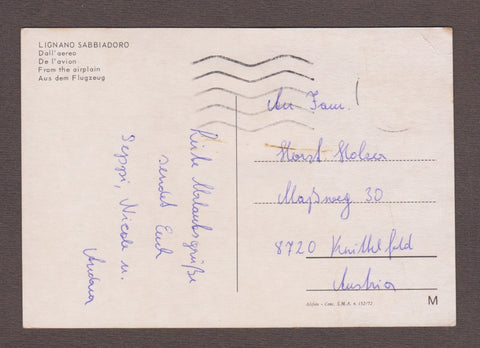 LIGNANO SABBIADORO
Dall'aereo
De l'avion
From the airplain
Aus dem Flugzeug
Liebe Urlaubsgrüße
sendet Euch
Seppi, Nicole u.
Andrea
An Fam.!
Horst Holzer
Maßweg 30
8720 Knittelfeld
Austria
M